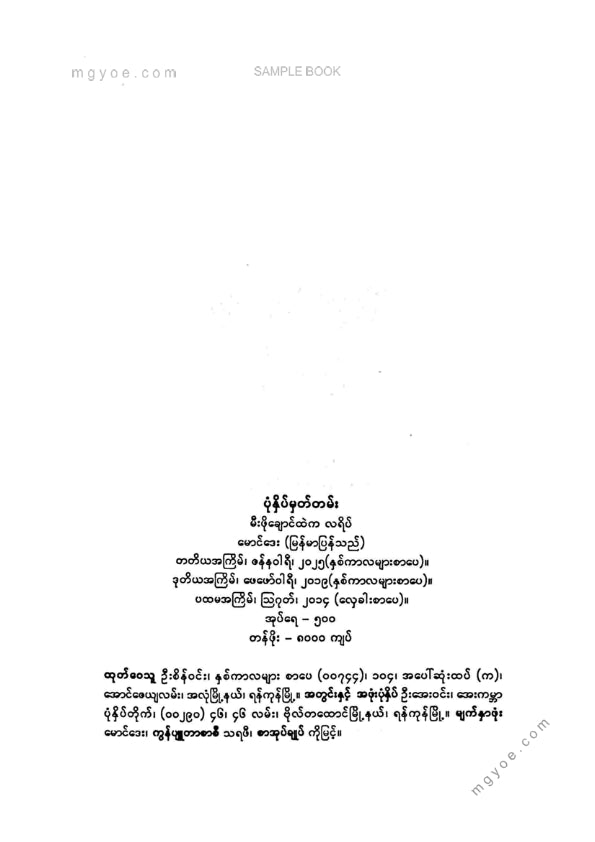 mgyoe.com SAMPLE BOOK
ပုံနှိပ်မှတ်တမ်း
မီးဖိုချောင်ထဲက လရိပ်
မောင်ဒေး (မြန်မာပြန်သည်)
တတိယအကြိမ်၊ ဇန်နဝါရီ၊ ၂၀၂၅(နှစ်ကာလများစာပေ)။
ဒုတိယအကြိမ်၊ ဖေဖော်ဝါရီ၊ ၂၀၁၉(နှစ်ကာလများစာပေ)။
ပထမအကြိမ်၊ ဩဂုတ်၊ ၂၀၁၄ (လှေခါးစာပေ)။
အုပ်ရေ – ၅၀၀
တန်ဖိုး – ၈၀၀၀ ကျပ်
ထုတ်ဝေသူ ဦးစိန်ဝင်း၊ နှစ်ကာလများ စာပေ (၀၀၇၄၄)၊ ၁၀၄၊ အပေါ်ဆုံးထပ် (က)၊
အောင်ဇေယျလမ်း၊ အလုံမြို့နယ်၊ ရန်ကုန်မြို့။ အတွင်းနှင့် အဖုံးပုံနှိပ် ဦးအေးဝင်း၊ အေးကမ္ဘာ
ပုံနှိပ်တိုက်၊ (၀၀၂၉၀) ၄၆၊ ၄၆ လမ်း၊ ဗိုလ်တထောင်မြို့နယ်၊ ရန်ကုန်မြို့။ မျက်နှာဖုံး
မောင်ဒေး၊ ကွန်ပျူတာစာစီ သရဖီ၊ စာအုပ်ချုပ် ကိုမြင့်။
mgyoe.com